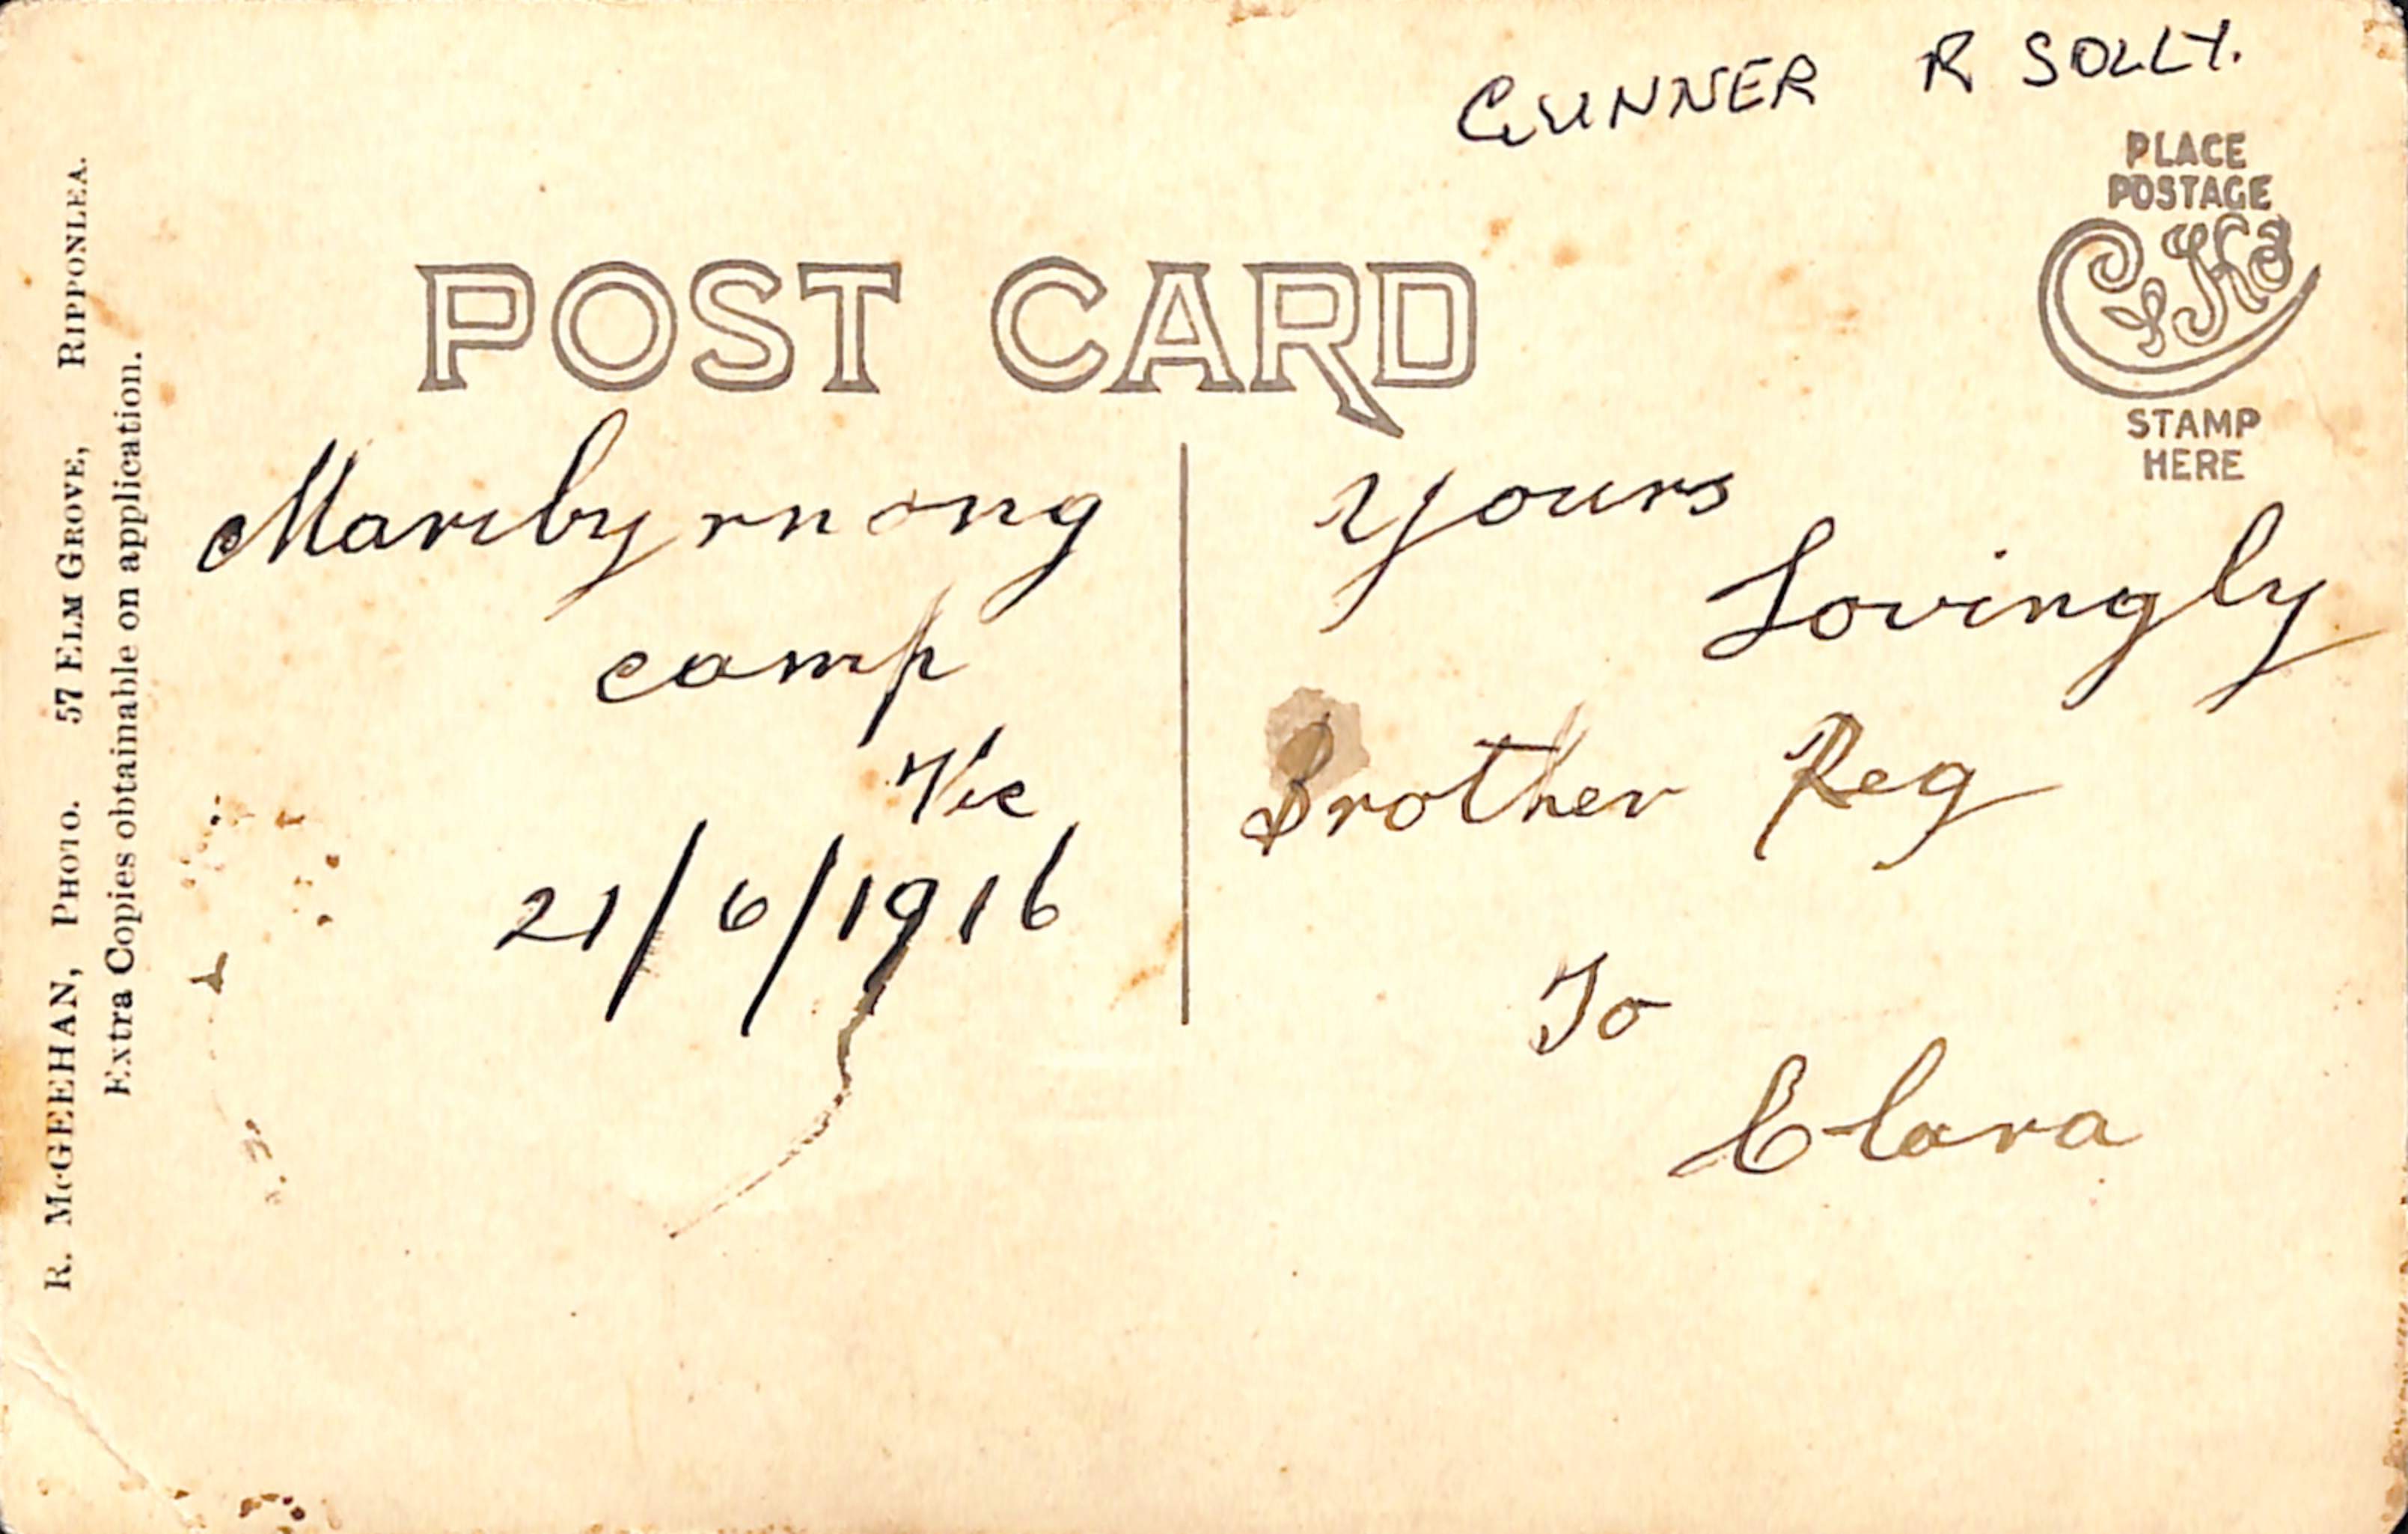 GUNNER R SOLLY.
PLACE
POSTAGE
STAMP
HERE
POST CARD
R. McGEEHAN, PHOTO. 57 ELM GROVE, RIPPONLEA.
Extra Copies obtainable on application.
Maribyrnong
camp
Vic
21/6/1916
Yours
Lovingly
Brother Reg
To
Clara